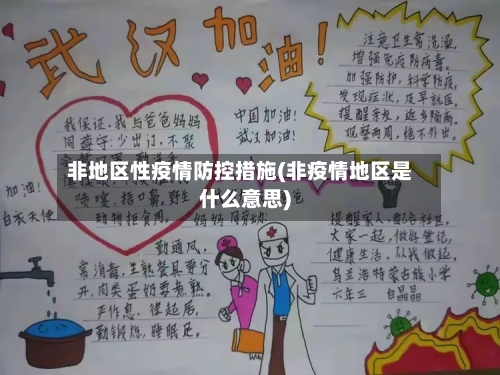 武汉加油!
注意卫生常洗澡,
增强免疫防病毒。
加强防护,科学防疫,
发现症状,及早就医,
提醒亲友,返乡隔离,
观察两周,绝不外出。
中国加油!
武汉加油!
我保证,我与爸爸妈妈
同遵守:少出门,不聚
非地区性疫情防控措施(非疫情地区是
什么意思)
加油!
白衣天使
喷嚏,捂口鼻,野生
动物拒食用。
妈妈同劳动
勤通风,
常消毒,生熟餐具要分
开,肉类蛋奶要煮熟。
严作息,律起居,
勤锻炼,睡眠足。
提醒家人,配合社区,
大家一起,做好登记,
健康生活,从我做起。
乌兰浩特蒙古族小学
六年三 白晶晶